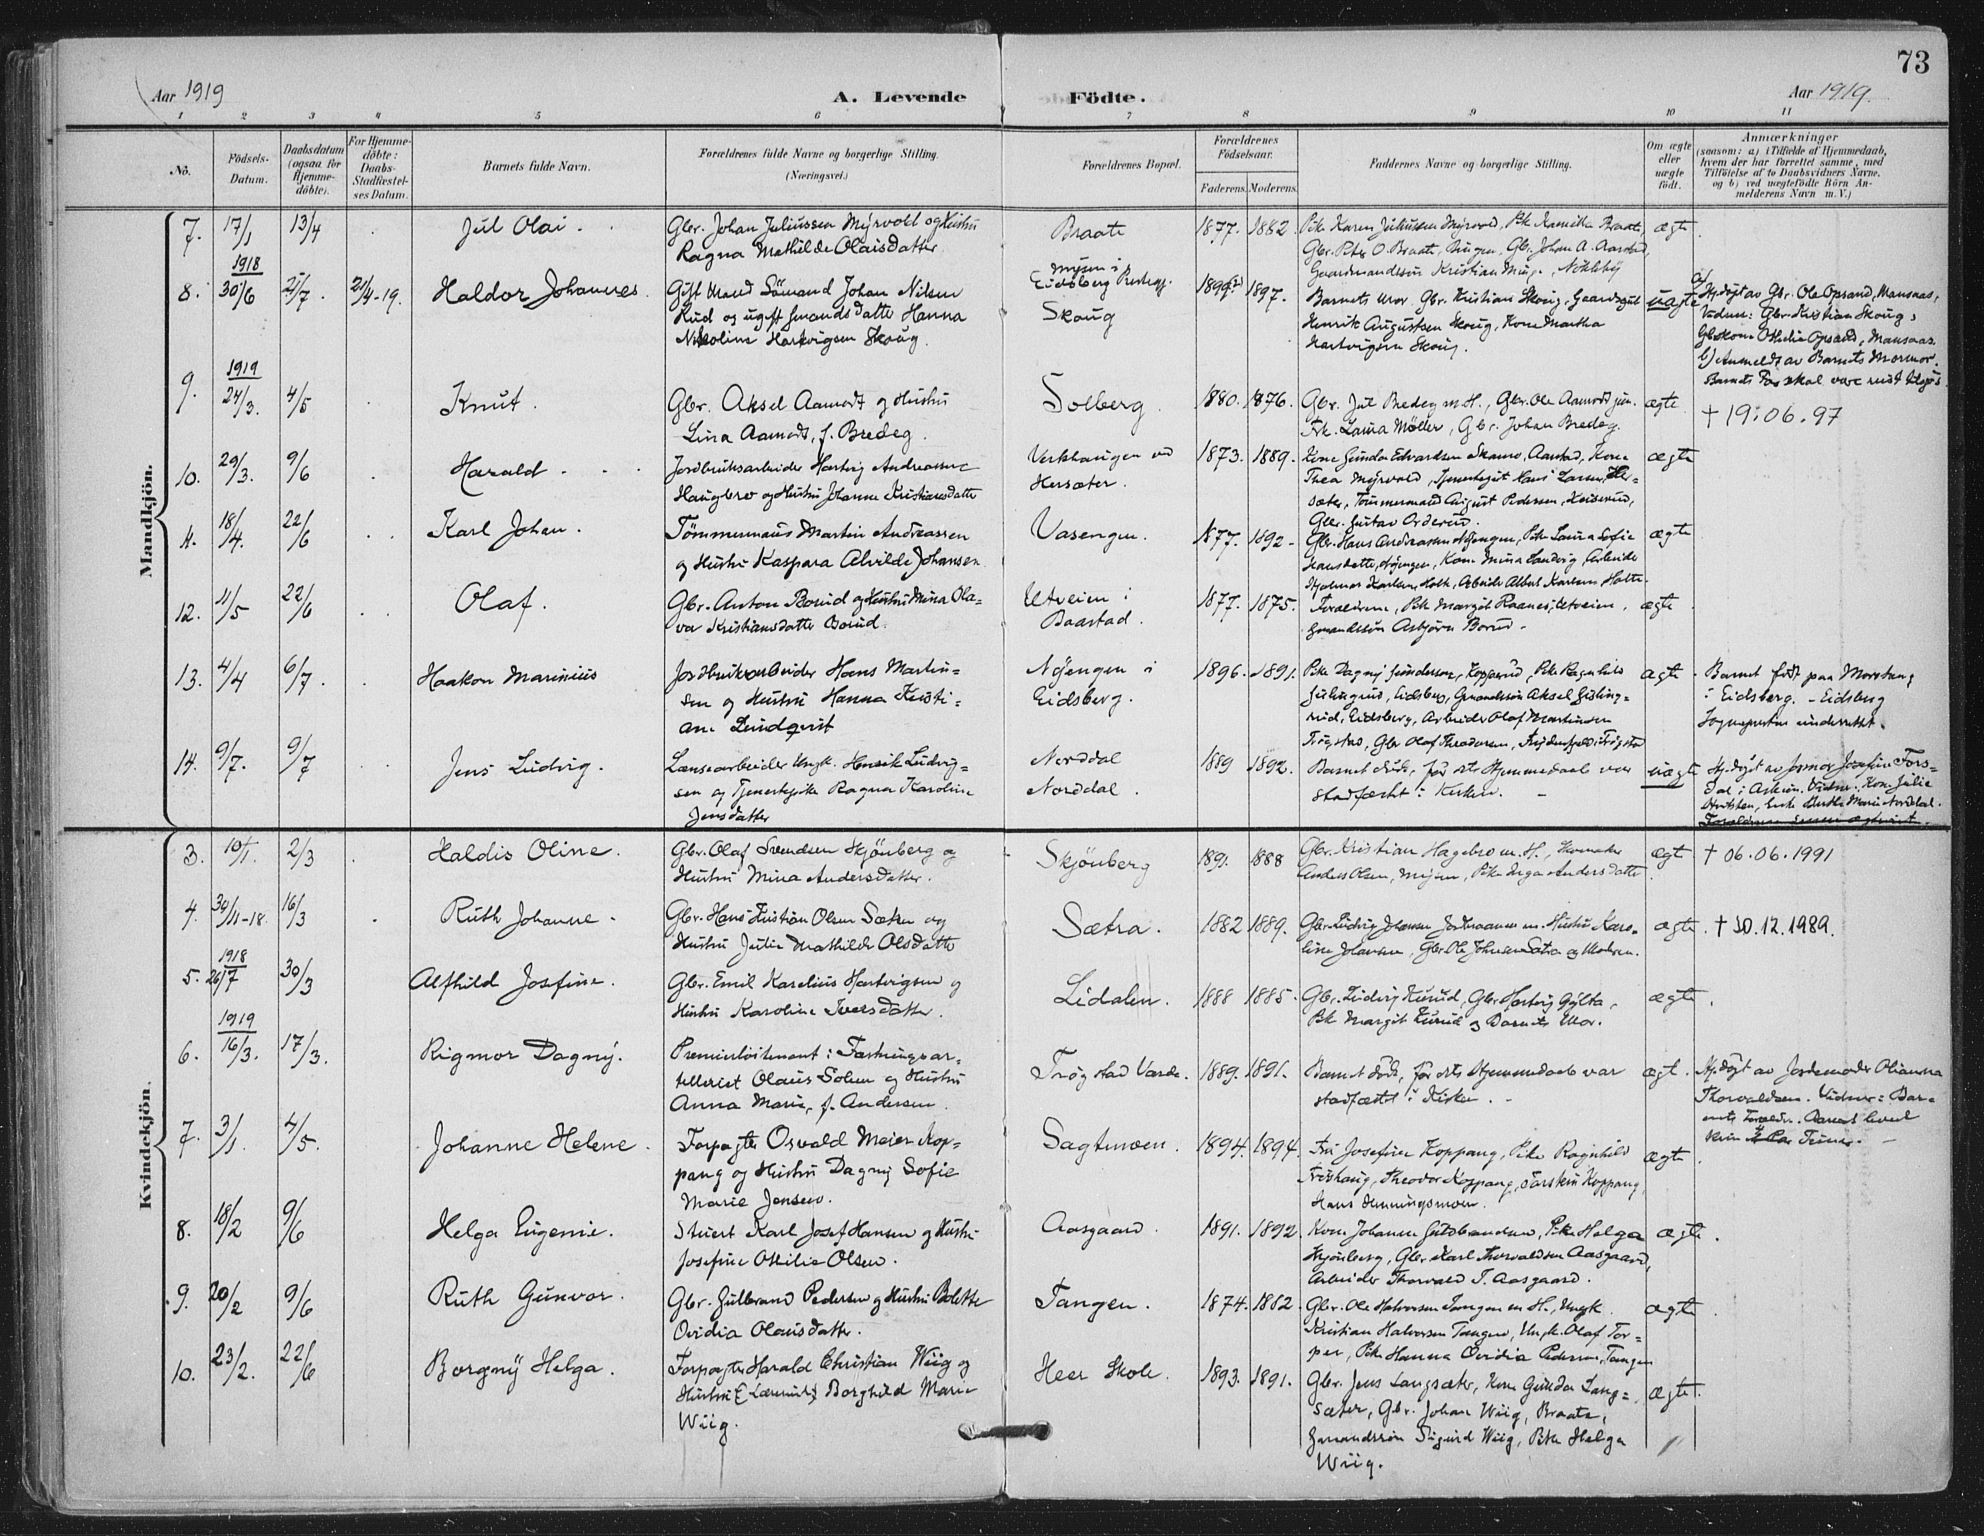 73
Aar 1919
A. Levende
Födte.
Aar 1919.
1 2 3 4 5 6 7 8 9 10 11
No.
Födsels-
Datum.
Daabsdatum
(ogsaa for
Hjemme-
döbte).
For Hjemme-
döbte:
Daabs-
Stadfæstel-
ses Datum.
Barnets fulde Navn.
Forældrenes fulde Navne og borgerlige Stilling.
(Næringsvei.)
Forældrenes Bopæl.
Forældrenes
Födselsaar.
Faderens. Moderens.
Faddernes Navne og borgerlige Stilling.
Om ægte
eller
uægte
födt.
Anmærkninger
(saasom: a) i Tilfælde af Hjemmedaab,
hvem der har forrettet samme, med
Tilföielse af to Daabsvidners Navne,
og b) ved uægtefödte Börn An-
melderens Navn m. V.)
Mandkjön.
7. 17/1 13/4 Jul Olai. Gbr. Johan Juliussen Myrvold og Hustru
Ragna Mathilde Olaisdatter
Braate 1877. 1882
Pike Karen Juliussen Myrvold, Pike
Gbr. Peter O. Braate, Gbr. Johan A.
Kristian
ægte
1918
8. 30/6 21/7. 21/4-19. Haldor Johannes. Gift Mand Sömand Johan Nilsen
Rud og ugift Gmandsdatter Hanna
Nikoline Hartvigsen Skoug.
Mysen i
Eidsberg
Skoug
1897.
Barnets Mor, Gbr. Kristian Skoug, Gaardsgut
Henrik Augustsen Skoug, Kone Martha
Hartvigsen Skoug.
uægte
a) Hj.döpt av Gbr. Ole Opsand, Mansaas,
Vidner: Gbr. Kristian Skoug,
Opsand, Mansaas.
b) Anmeldt av Barnets Mormor.
Barnets Far skal være reist tilsjös.
1919
9. 24/3. 4/5 Knut. Gbr. Aksel Aamodt og Hustru
Lina Aamodt, f. Bredeg.
Solberg. 1880. 1876.
Gbr. Jul Bredeg m. H., Gbr. Ole Aamodt jun.
Frk. Laura Møller, Gbr. Johan Bredeg.
ægte
† 19.06.97
10. 29/3. 9/6 Harald. Jordbruksarbeider Hartvig Andreassen
Haugbro og Hustru Johanne Kristiansdatter
ved
Hersæter.
1873. 1889.
Kone Gunda Edvardsen Skamo, Kone
Thea Myrvold, Tjenestegut Hans Larsen, Her-
sæter, Tömmermand August Pedersen,
Gbr. Gustav Orderud.
ægte
11. 18/4. 22/6 Karl Johan. Tömmermand Martin Andreassen
og Hustru Kaspara Alvilde Johansen
Vasengen. 1877. 1892.
Gbr. Hans Andreassen Nöjengen, Pike Laura Sofie
Hansdatter, Nöjengen, Kone Mina Arbeider
Hjalmar Karlsen Holt, Arbeider Albert Karlsen Holte.
ægte
12. 11/5 22/6 Olaf. Gbr. Anton Borud og Hustru Mina Ola-
va Kristiansdatter Borud.
Utveien i
Baastad.
1877. 1875.
Forældrene, Pike Margit Utveien,
Gmandssön Asbjörn Borud.
ægte
13. 4/4 6/7. Haakon Marinius Jordbruksarbeider Hans Martin-
sen og Hustru Hanna Kristi-
ane Lundqvist
Nöjengen i
Eidsberg.
1896. 1891.
Pike Dagny Gundersen, Pike Ragnhild
Eidsberg, Gmandssön Aksel Gisling-
rud, Eidsberg, Arbeider Olaf Martinsen
Trögstad, Gbr. Olaf Theodorsen, Trögstad
ægte
Barnet födt paa Morstong
i Eidsberg. – Eidsberg
Sogneprest underrettet.
14. 9/7. 9/7 Jens Ludvig. Lænsearbeider Ungk. Henrik Ludvig-
sen og Tjenestepike Ragna Karoline
Jensdatter
Norddal
Norddal.
1889 1892.
Barnet döde, för dets Hjemmedaab var
stadfæstet i Kirken.
uægte
Hj.döpt av Jormor Josefine Fors-
dal i Askim. Vidner: Kone Julie
Marie Norddal.
Kvindekjön.
3. 10/1. 2/3 Haldis Oline. Gbr. Olaf Svendsen Skjönberg og
Hustru Mina Andersdatter.
Skjönberg 1891. 1888
Gbr. Kristian Hagebro m. H.,
Anders Olsen, Mysen, Pike Inga Andersdatter
ægte
† 06.06.1991
4. 30/11-18. 16/3 Ruth Johanne. Gbr. Hans Kristian Olsen Sætra og
Hustru Julie Mathilde Olsdatter
Sætra. 1882 1889.
Gbr. Ludvig Johansen m. Hustru Karo-
line Johansen, Gbr. Ole Johnsen Sætra og Moderen.
ægte.
† 30.12.1989.
1918
5. 26/7 30/3 Alfhild Josefine. Gbr. Emil Karelius Hartvigsen og
Hustru Karoline Iversdatter.
Lidalen. 1888 1885.
Gbr. Ludvig Kurud, Gbr. Hartvig Gylta,
Pike Margit Kurud og Barnets Mor.
ægte
1919
6. 16/3. 17/3. Rigmor Dagny. Premierlöitenant i Fæstningsar-
telleriet Olaus Solum og Hustru
Anna Marie, f. Andersen.
Trögstad Varde. 1889. 1891.
Barnet döde, för dets Hjemmedaab var
stadfæstet i Kirken.
ægte.
Hj.döpt av Jordemoder Olianna
Thorvaldsen. Vidner: Bar-
nets Foreldre.
7. 3/1. 4/5. Johanne Helene. Forpagter Osvald Meier Kop-
pang og Hustru Dagny Sofie
Marie Jensen.
Sagtmoen. 1894. 1894.
Fru Josefine Koppang, Pike Ragnhild
Theodor Koppang, Torstein Koppang,
Hans Henningsmoen.
ægte
8. 18/2 9/6 Helga Eugenie. Stuert Karl Josef Hansen og Hustru
Josefine Ottilie Olsen.
Aasgaard. 1891. 1892
Kone Johanne Guldbrandsen, Pike Helga
Skjönberg, Gbr. Karl Thorvaldsen Aasgaard,
Arbeider Thorvald T. Aasgaard.
ægte.
9. 20/2 9/6 Ruth Gunvor. Gbr. Gulbrand Pedersen og Hustru Bolette
Ovidia Olausdatter.
Tangen. 1874. 1882
Gbr. Ole Halvorsen Tangen m. H., Ungk.
Kristian Halvorsen Tangen, Ungk. Olaf Tor-
per, Pike Hanna Ovidia Pedersen, Tangen
ægte
10. 23/2. 22/6 Borgny Helga. Forpagter Harald Christian Wiig og
Hustru (Lærerinde) Borghild Marie
Wiig.
Heer Skole. 1893. 1891.
Gbr. Jens Langsæter, Kone Gunda Lang-
sæter, Gbr. Johan Wiig, Braate,
Gmandssön Sigurd Wiig, Pike Helga
Wiig.
ægte.